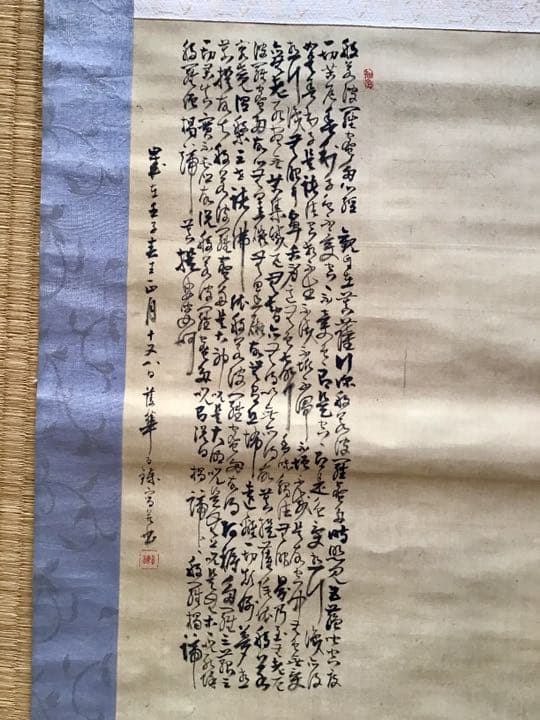 般若波羅蜜多心經 觀自在菩薩行深般若波羅蜜多時照見五蘊皆空度
一切苦厄舍利子色不異空空不異色色即是空空即是色受想行識亦復
如是舍利子是諸法空相不生不滅不垢不淨不增不減是故空中無色無受
想行識無眼耳鼻舌身意無色聲香味觸法無眼界乃至無
亦無老死盡無苦集滅道無智亦無得以無所得故菩提薩埵依般若
波羅蜜多故心無罣礙無罣礙故無有恐怖遠離一切顛倒夢想
究竟涅槃三世諸佛依般若波羅蜜多故得阿耨多羅三藐三
菩提故知般若波羅蜜多是大神咒是大明咒是無上咒是無等等咒能除
一切苦真實不虛故說般若波羅蜜多咒即說咒曰揭諦揭諦般羅揭諦
般羅僧揭諦 菩提娑婆訶
歲在壬子春王正月十又八日